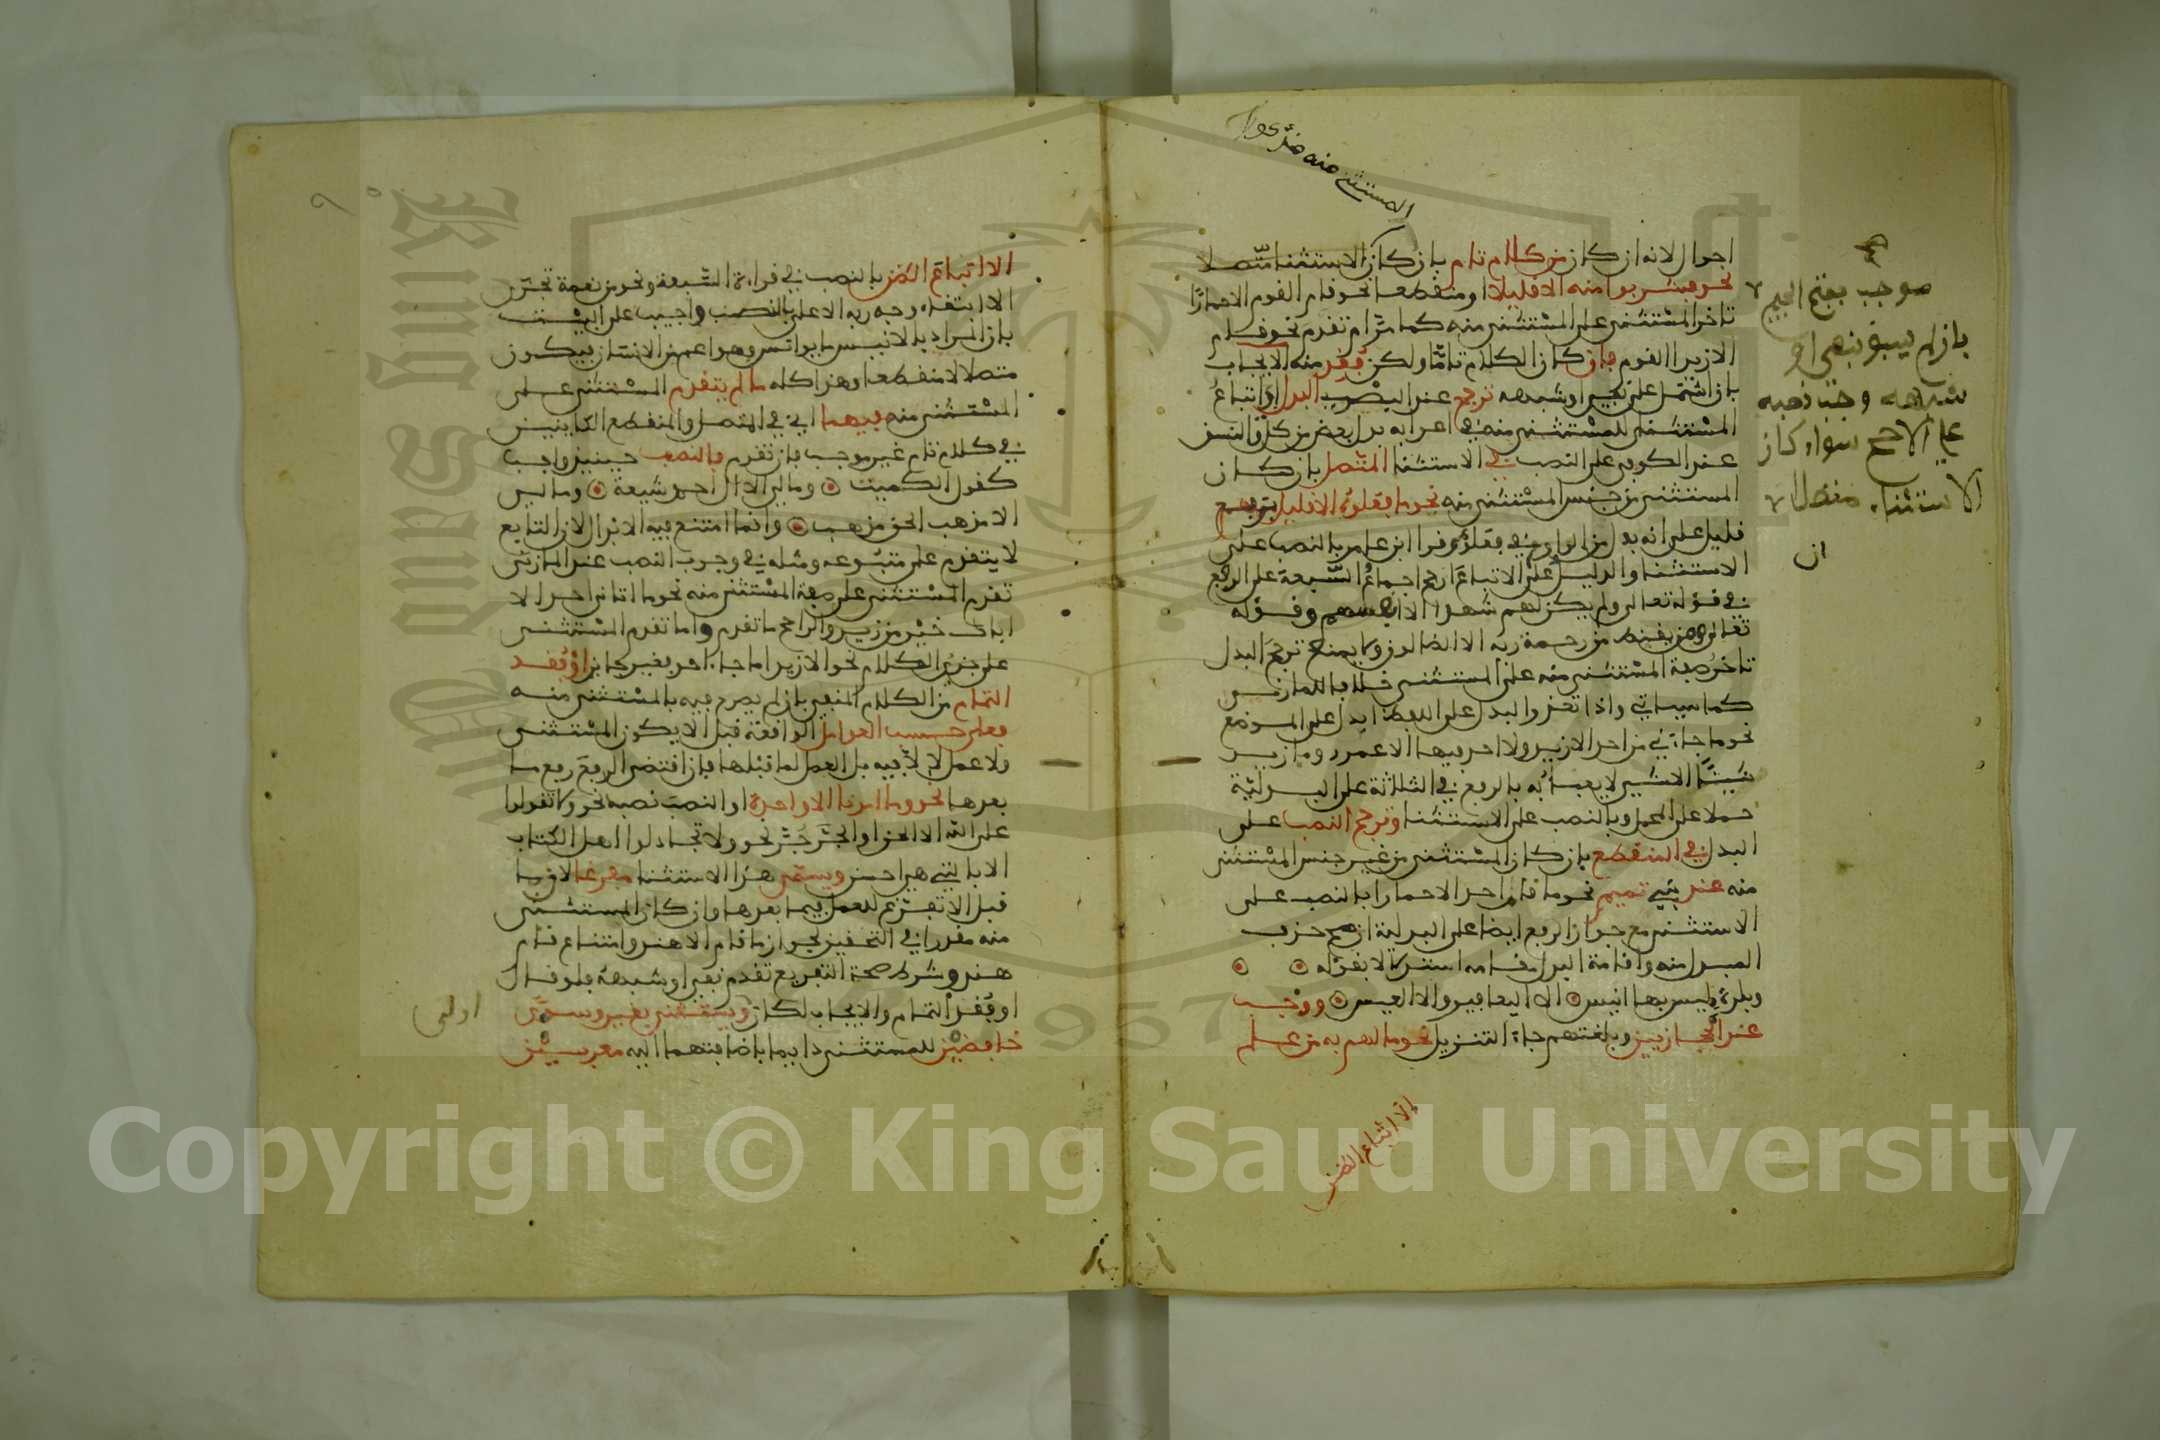 المستثنى منه
احوال لانه ان كان من كلام تام بان كان الاستثنا متصلا
نحو فشربوا منه الا قليلا او منقطعا نحو قام القوم الا حمارا
تاخر المستثنى على المستثنى منه كما مر ام تقدم نحو قام
الا زيرا القوم فان كان الكلام تاما ولكن فقد منه الايجاب
بان اشتمل على نفي او شبهه ترجح عند البصريين البدل او اتباع
المستثنى للمستثنى منه في اعرابه بدل بعض من كل والنسق
عند الكوفي على النصب في الاستثنا المتصل بان كان
المستثنى من جنس المستثنى منه نحو ما فعلوه الا قليل برفع
قليل على انه بدل من الواو في فعلوه وقرا ابن عامر بالنصب على
الاستثنا والدليل على الاتباع ارجح اجماع السبعة على الرفع
في قوله تعالى ولم يكن لهم شهدا الا انفسهم وقوله
تعالى ومن يقنط من رحمة ربه الا الضالون ولا يمنع ترجح البدل
تاخر صفة المستثنى منه على المستثنى خلافا للمازني
كما سياتي واذا تعذر البدل على اللفظ ابدل على الموضع
نحو ما جاءني من احد الا زيد ولا احد فيها الا عمرو وما زيد
شيئا الا شي لا يعبا به بالرفع في الثلاثة على البدلية
حملا على المحل وبالنصب على الاستثنا وترجح النصب على
البدل في المنقطع بان كان المستثنى من غير جنس المستثنى
منه عند بني تميم نحو ما قام احد الا حمارا بالنصب على
الاستثنى مع جواز الرفع ايضا على البدلية ان صح حذف
المبدل منه واقامة البدل مقامه استدلالا بقوله
وبلدة ليس بها انيس الا اليعافير والا العيس ووجب
عند الحجازيين وبلغتهم جاء التنزيل نحو ما لهم به من علم
إلا اتباع الظن
موجب بفتح الجيم
بان لم يسبق بنفي او
شبهه وجب نصبه
على الاصح سواء كان
الاستثناء متصلا
ان
الا اتباع الظن بالنصب في قراءة السبعة ونحو من نعمة تجزى
الا ابتغاء وجه ربه الاعلى بالنصب واجيب على البيت
بان المراد بالانيس ما يوانس وهو اعم من الانسان فيكون
متصلا لا منقطعا وهذا كله ما لم يتقدم المستثنى على
المستثنى منه فيهما اي في المتصل والمنقطع الكاينين
في كلام تام غير موجب فان تقدم فالنصب حينيذ واجب
كقول الكميت وما لي الا ال احمد شيعة وما لي
الا مذهب الحق مذهب وانما امتنع فيه الابدال لان التابع
لا يتقدم على متبوعه ومثله في وجوب النصب عند المازني
تقدم المستثنى على صفة المستثنى منه نحو ما اتاني احد الا
اباك خير من زيد والراجح ما تقدم واما تقدم المستثنى
على جزئي الكلام نحو الا زيدا ما جاء احد فغير جايز او فقد
التمام من الكلام المنفي بان لم يصرح فيه بالمستثنى منه
فعلى حسب العوامل الواقعة قبل الا يكون المستثنى
ولا عمل لالا فيه بل العمل لما قبلها فان اقتضى الرفع رفع ما
بعدها نحو وما امرنا الا واحدة او النصب نصبه نحو ولا تقولوا
على الله الا الحق او الجر جر نحو ولا تجادلوا اهل الكتاب
الا بالتي هي احسن ويسمى هذا الاستثنا مفرغا لان ما
قبل الا تفرغ للعمل فيما بعدها وان كان المستثنى
منه مقدرا في التحقيق لجواز ما قام الا هند وامتناع قام
هند وشرط صحة التفريع تقدم نفي او شبهه فلو قال
او فقد التمام والايجاب لكان ويستثنى بغير وسوى
خافضين للمستثنى دايما باضافتهما اليه معربين
اولى
Copyright © King Saud University
King Saud University
1957